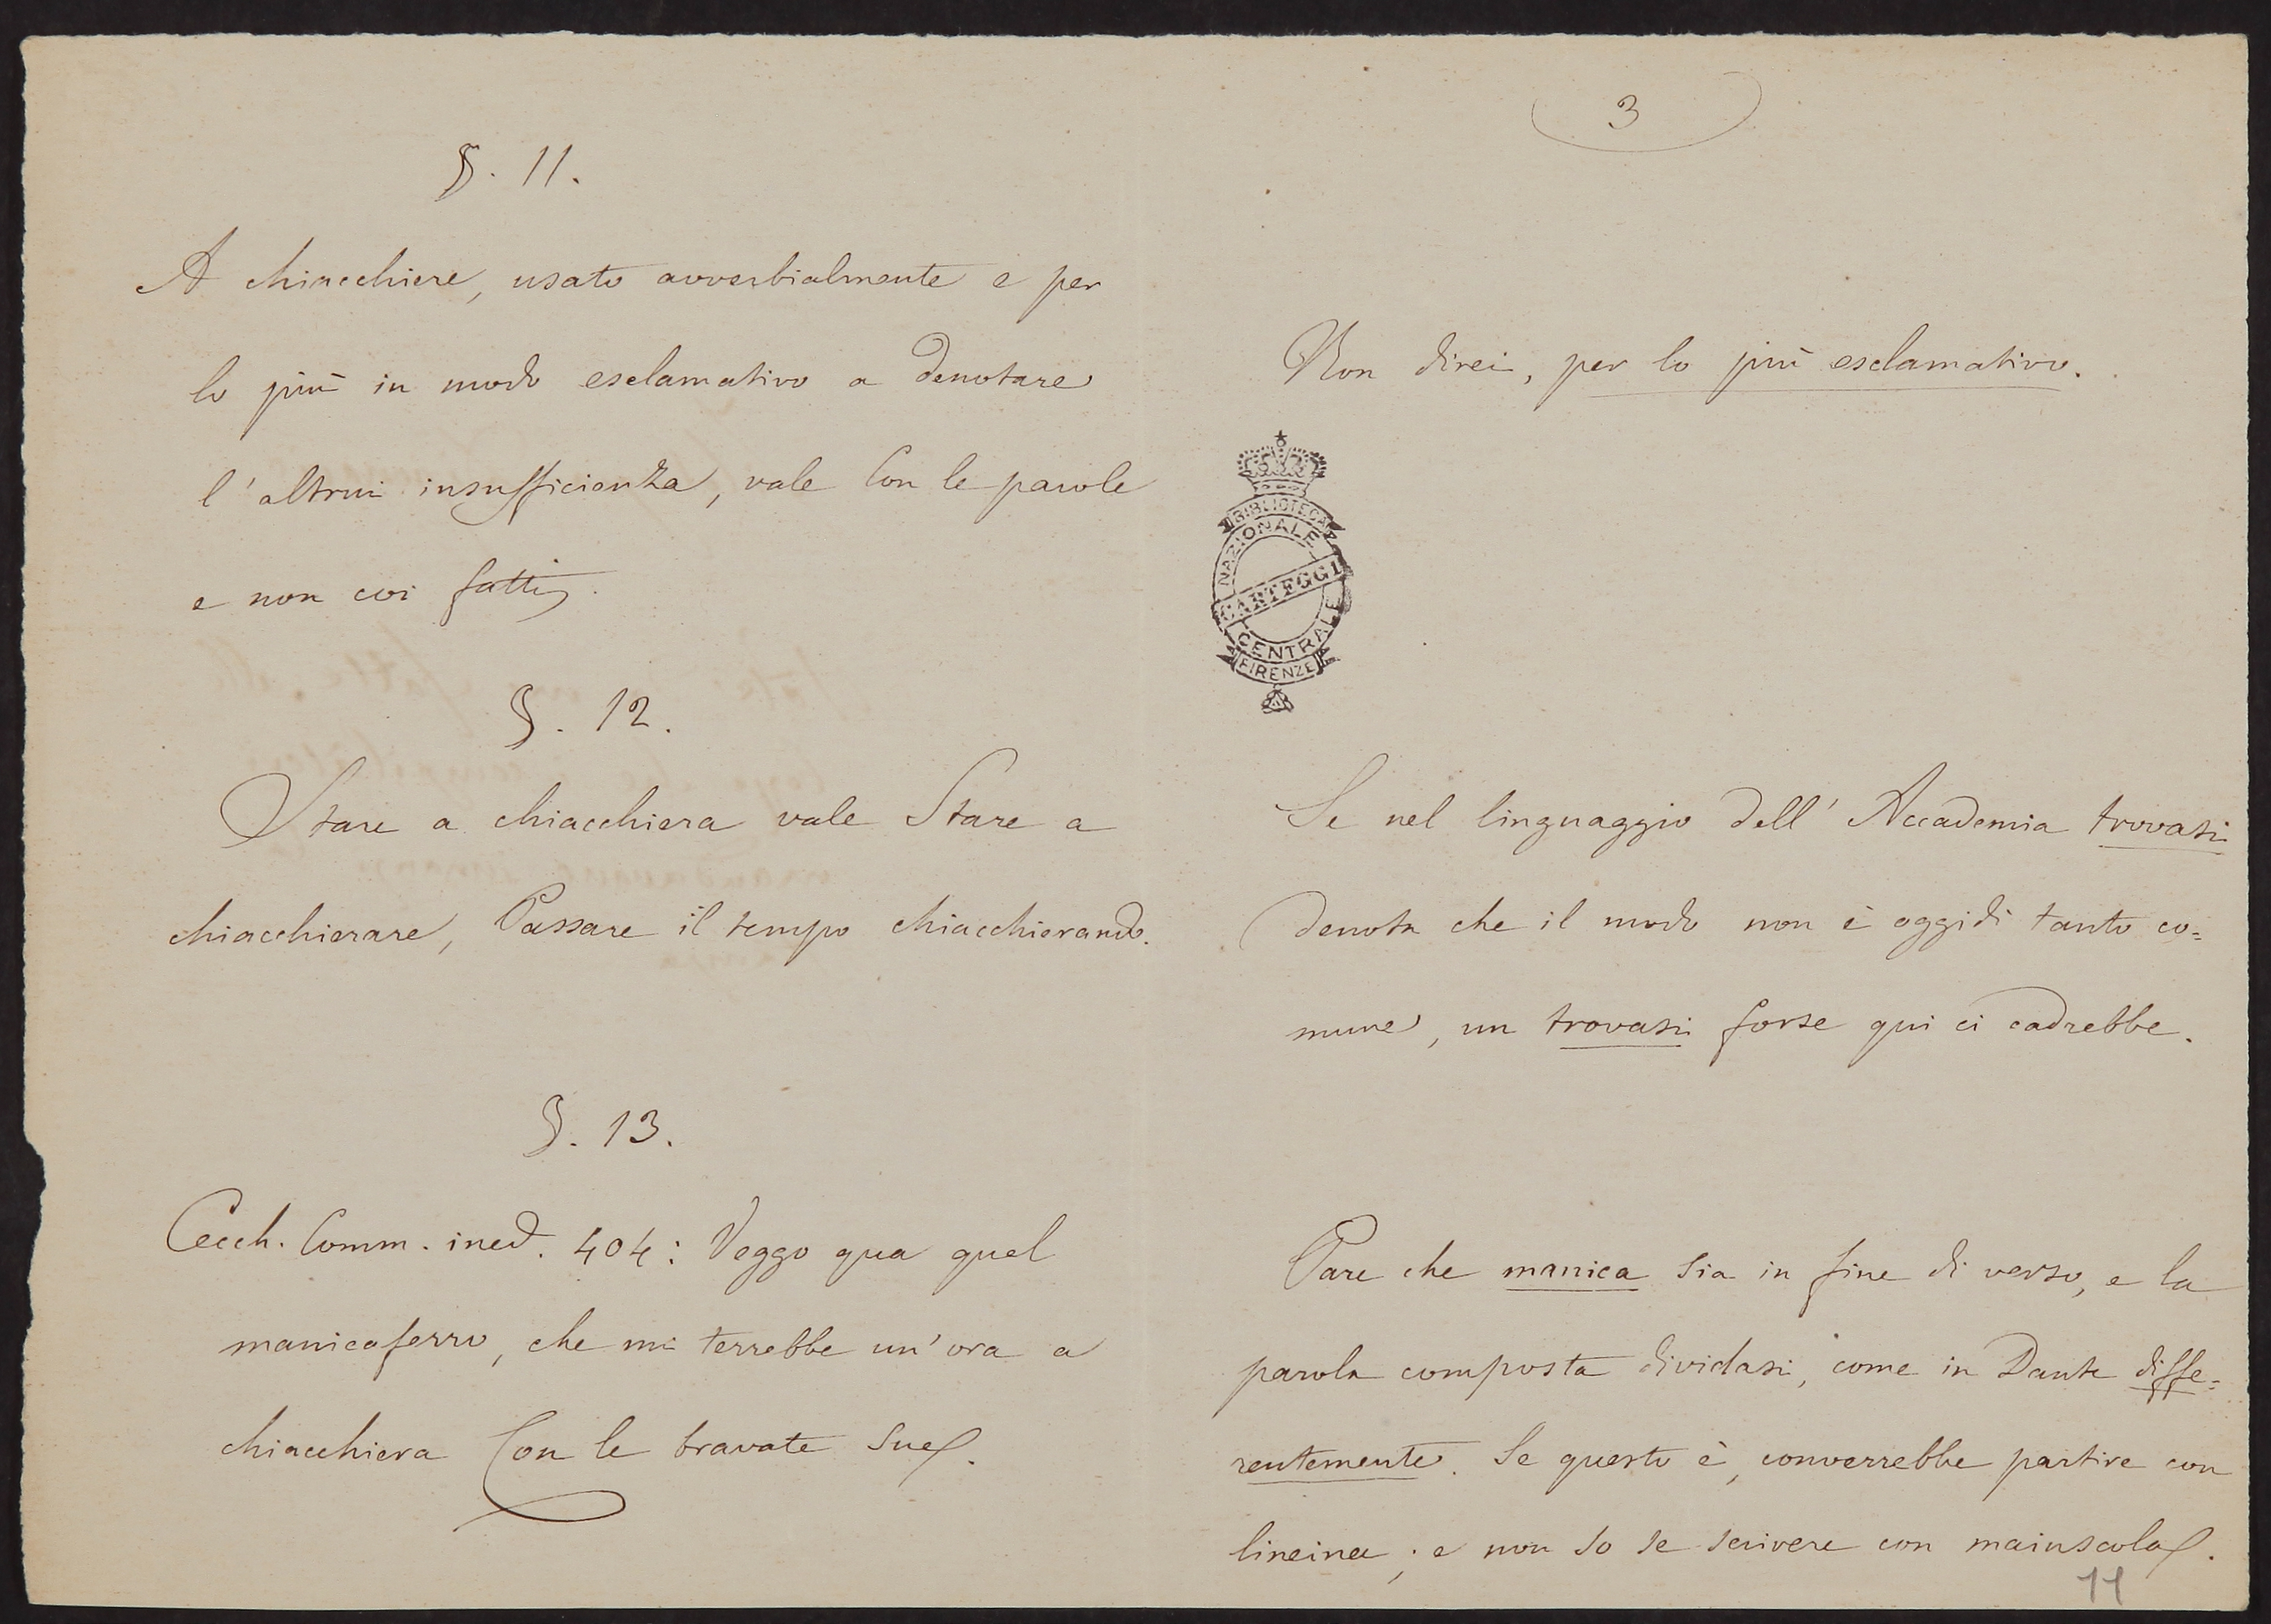 §. 11.
A chiacchiere, usato avverbialmente e per
lo più in modo esclamativo a denotare
l'altrui insufficienza, vale Con le parole
e non coi fatti.
§. 12.
Stare a chiacchiera vale Stare a
chiacchierare, Passare il tempo chiacchierando.
§. 13.
Cecch. Comm. ined. 404: Veggo qua quel
manicaferro, che mi terrebbe un'ora a
chiacchiera Con le bravate sue.
3
Non direi, per lo più esclamativo.
BIBLIOTECA
NAZIONALE
CARTEGGI
CENTRALE
FIRENZE
Se nel linguaggio dell'Accademia trovasi
denota che il modo non è oggidì tanto co=
mune, un trovasi forse qui ci cadrebbe.
Pare che manica sia in fine di verso, e la
parola composta dividasi, come in Dante diffe=
rentemente. Se questo è, converrebbe partire con
lineina; e non so se scrivere con maiuscola.
11